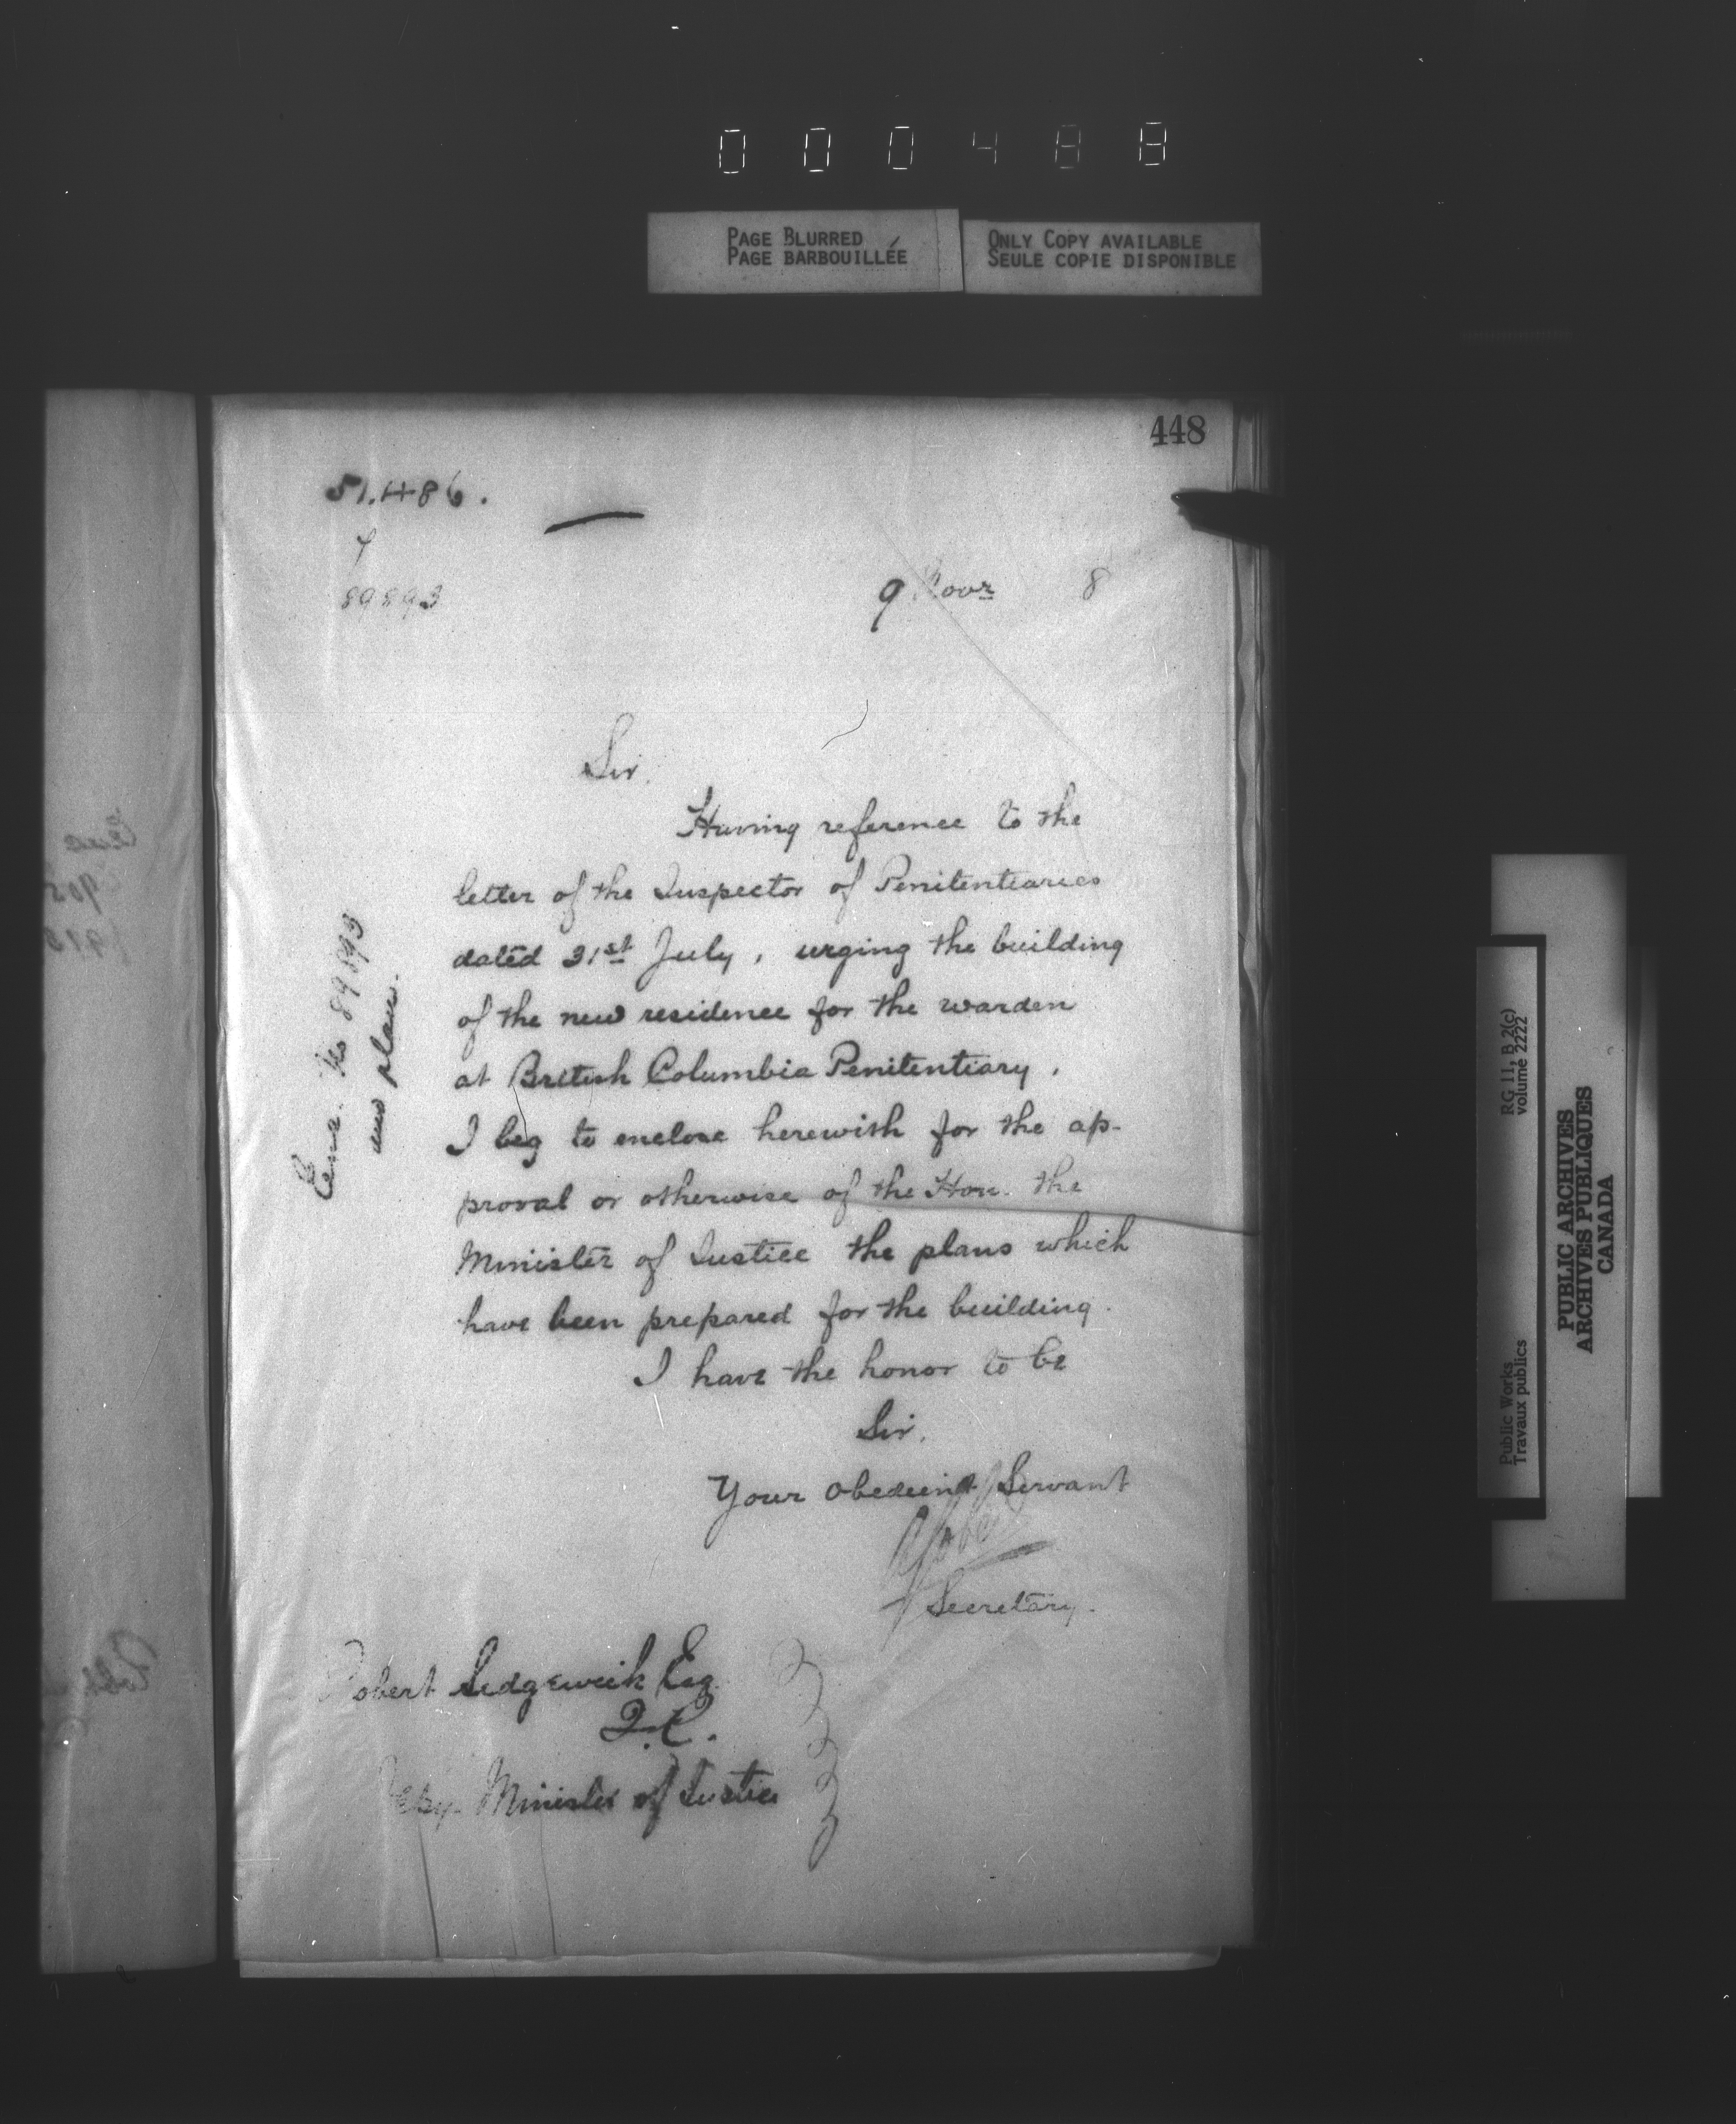 000488
PAGE BLURRED
PAGE BARBOUILLÉE
ONLY COPY AVAILABLE
SEULE COPIE DISPONIBLE
448
51.486.
89893
9 Novr 8
Sir.
Having reference to the
letter of the Inspector of Penitentiaries
dated 31st July, urging the building
of the new residence for the warden
at British Columbia Penitentiary,
I beg to enclose herewith for the ap-
proval or otherwise of the Hon. the
Minister of Justice the plans which
have been prepared for the building.
I have the honor to be
Sir.
Your Obedient Servant
Secretary.
Robert Sedgewick Esq
Q.C.
Depy. Minister of Justice
No 89893
plans.
Public Works
Travaux publics
RG 11, B 2(c)
volume 2222
PUBLIC ARCHIVES
ARCHIVES PUBLIQUES
CANADA